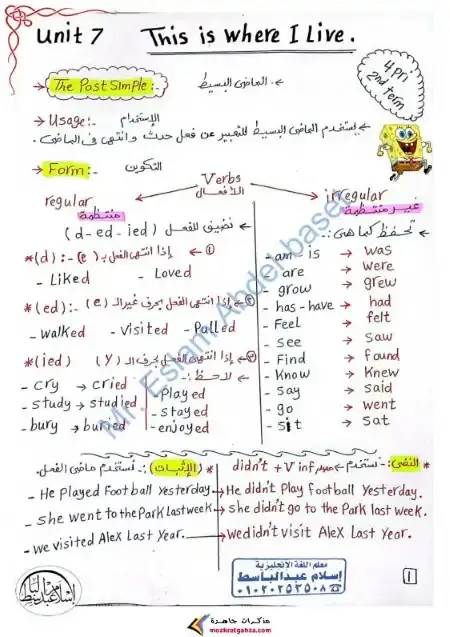 Unit 7 This is where I Live.
4 pri
2nd term
→ The Past Simple:- الماضي البسيط.
→ Usage:- الاستخدام
يستخدم الماضي البسيط للتعبير عن فعل حدث وانتهى في الماضي.
→ Form:- التكوين
Verbs
الأفعال
regular irregular
منتظمة غير منتظمة
نضيف للفعل (d-ed-ied) تحفظ كما هي:-
*(d):- إذا انتهى الفعل بـ (e) ①
- Liked - Loved
*(ed):- إذا انتهى الفعل بحرف غير الـ (e) ②
- walked - visited - Pulled
*(ied) إذا انتهى الفعل بحرف الـ (y) ③
- cry → cried
- study → studied
- bury → buried
لاحظ:-
- Played
- stayed
- enjoyed
- am - is → was
- are → were
- grow → grew
- has - have → had
- Feel → felt
- see → saw
- Find → found
- Know → Knew
- say → said
- go → went
- sit → sat
* (الإثبات):- نستخدم ماضي الفعل. * النفي:- نستخدم didn't + V inf مصدر
- He Played Football Yesterday. → He didn't Play football Yesterday.
- She went to the Park last week. → She didn't go to the Park last week.
- we visited Alex Last Year. → we didn't visit Alex Last Year.
Mr. Eslam Abdelbaset
معلم اللغة الإنجليزية
إسلام عبدالباسط
٠١٠٢٠٢٥٢٥٠٨
1
مذكرات جاهزة
mozkratgahza.com